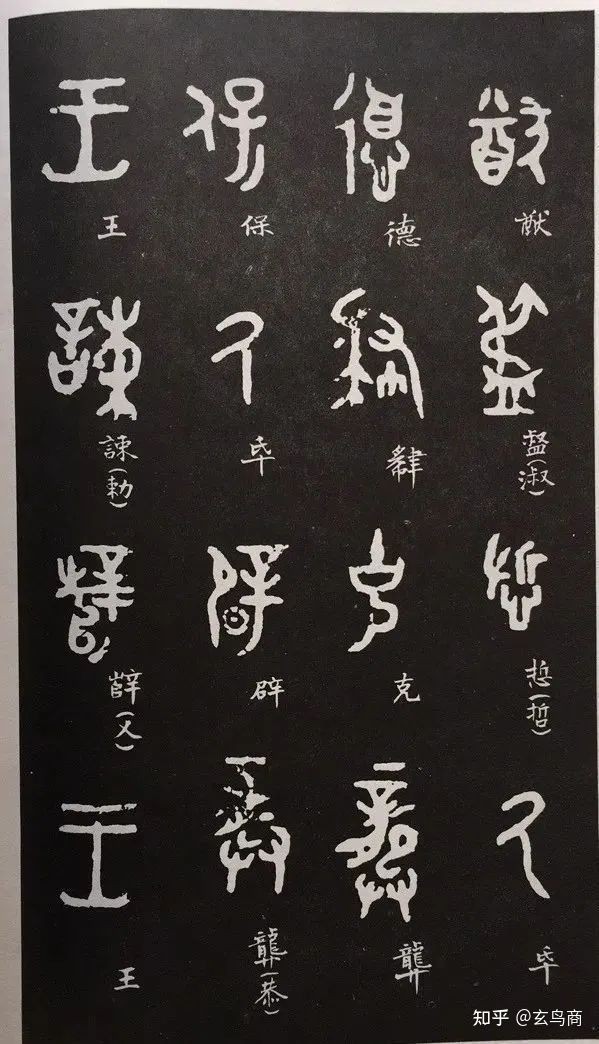 猷 盄(淑) 悊(哲) 氒
德 克 龏
保 氒 辟 龏(恭)
王 諫(勅) 辥(乂) 王
知乎 @玄鸟商